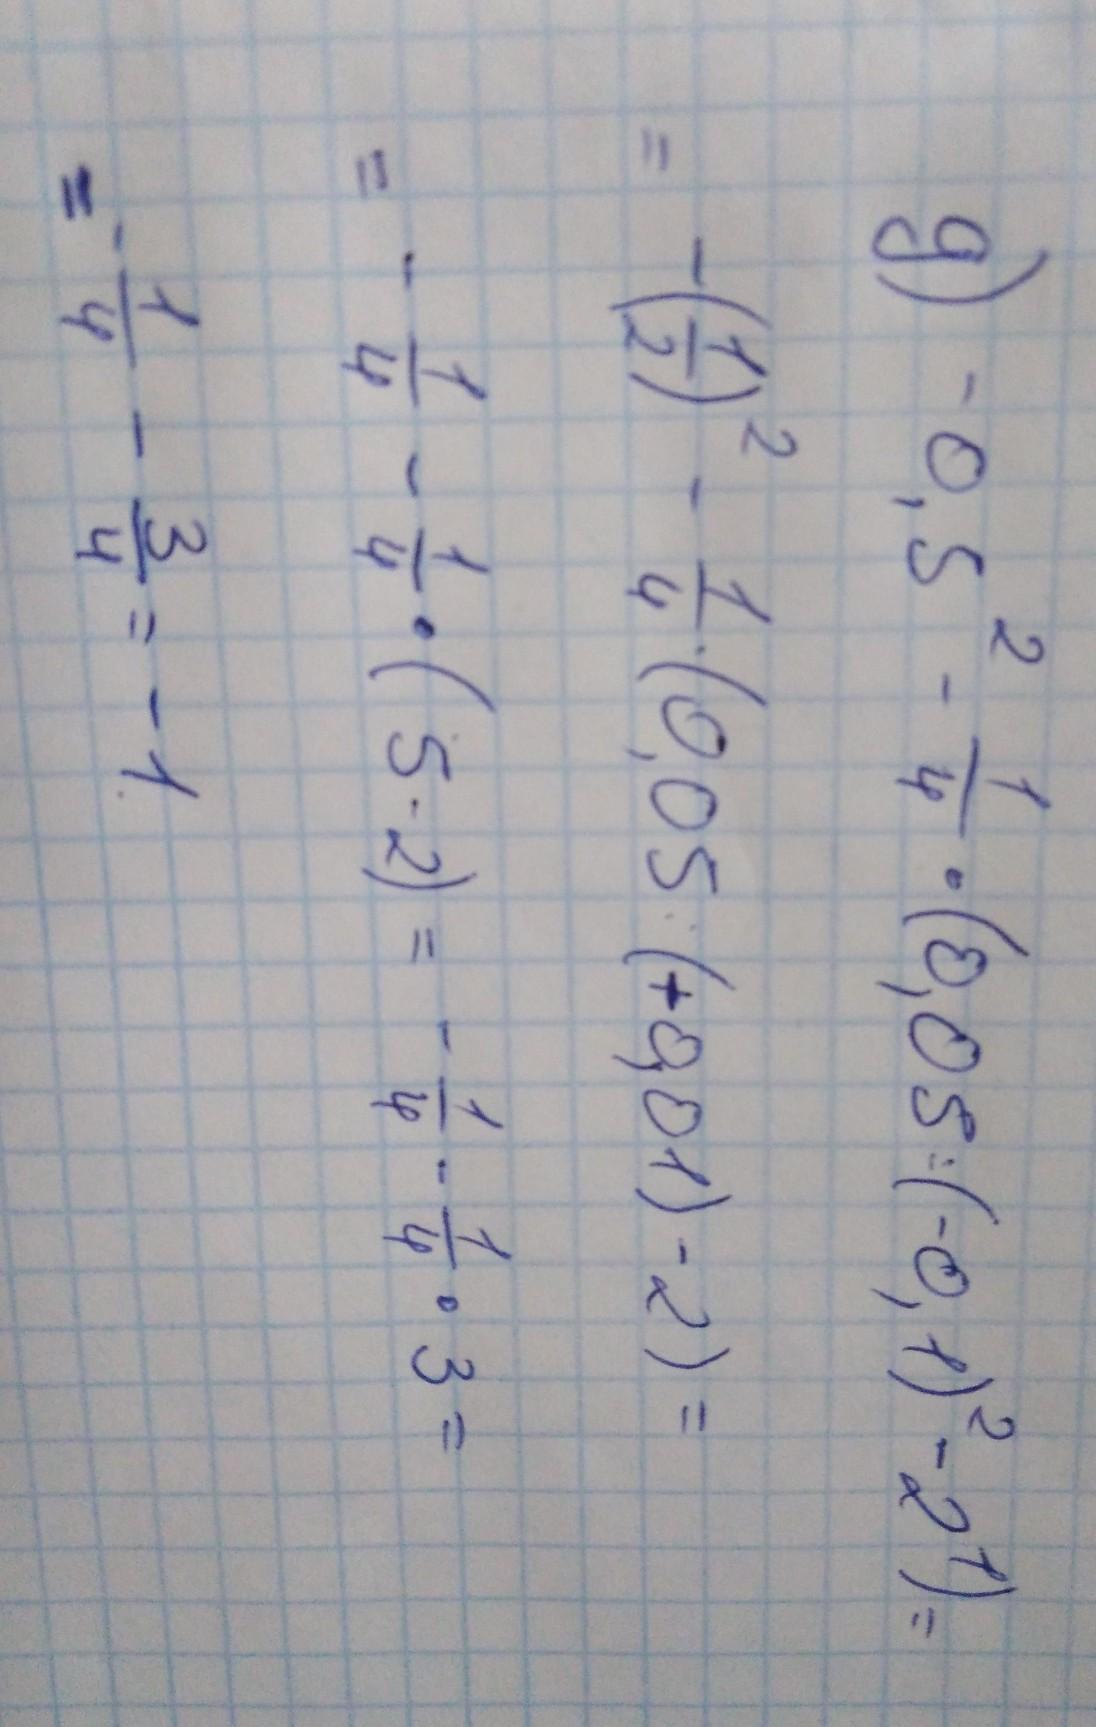 g) -0,5² - 1/4 · (0,05:(-0,1)² - 2¹) =
= -(1/2)² - 1/4 · (0,05:(+0,01) - 2) =
= - 1/4 - 1/4 · (5 - 2) = - 1/4 - 1/4 · 3 =
= - 1/4 - 3/4 = - 1